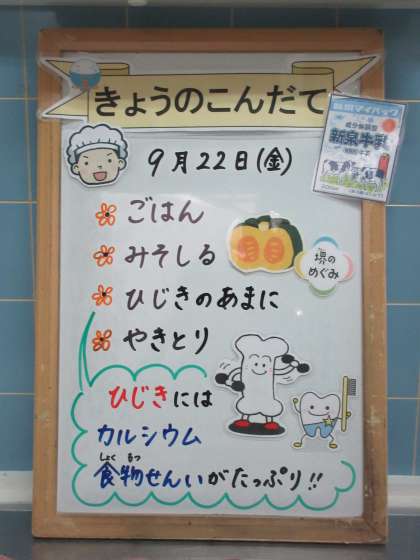 きょうのこんだて
9月22日(金)
成分無調整
新泉牛乳
ごはん
みそしる
堺の
めぐみ
ひじきのあまに
やきとり
ひじきには
カルシウム
しょく もつ
食物せんいがたっぷり!!